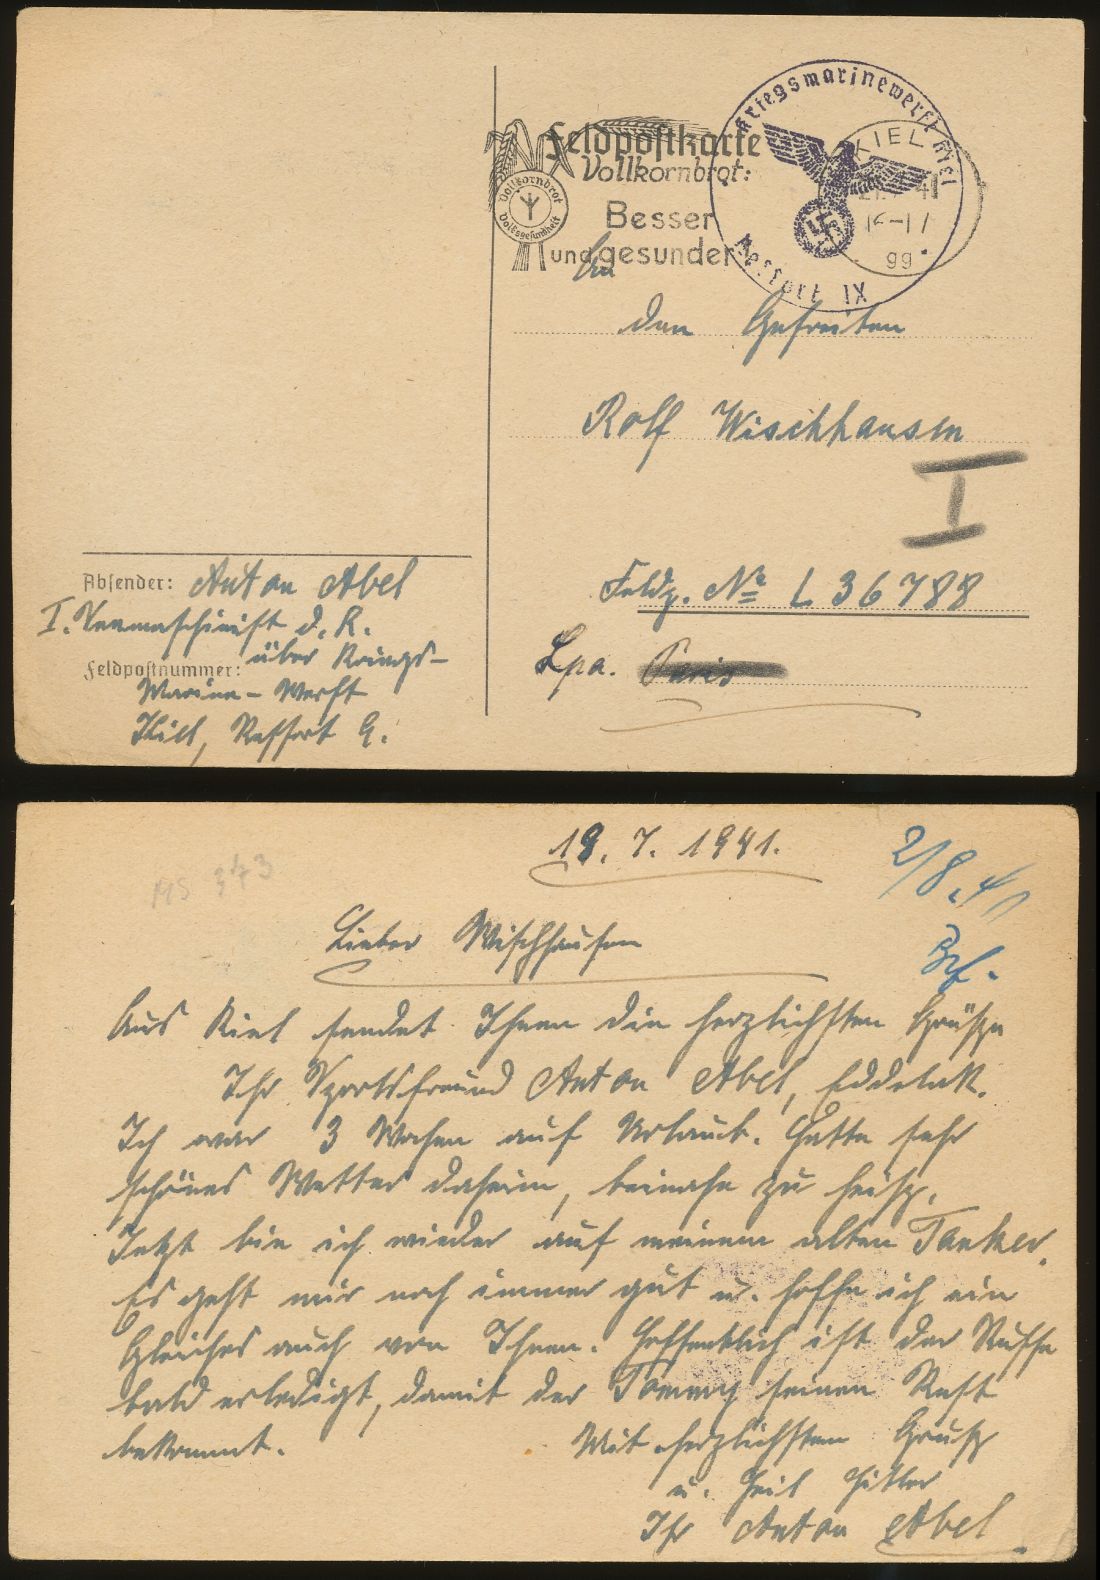 Feldpostkarte
Vollkornbrot:
Besser
und gesunder
Vollkornbrot
Volksgesundheit
Kriegsmarinewerft Kiel
Ressort IX
KIEL
16-17
gg
An
den Gefreiten
Rolf Wischhausen
I
Feldp. No L 36788
Lpa. Paris
Absender: Anton Abel
I. d. R.
Feldpostnummer: über Kriegs-
Marine-Werft
Kiel, Ressort 9.
MS 343
19. 7. 1941.
2/8.41
Lieber Wischhausen
Aus Kiel sendet Ihnen die herzlichsten Grüße
Ihr Sportsfreund Anton Abel, Eddelak.
Ich war 3 Wochen auf Urlaub. Hatte sehr
schönes Wetter daheim, beinahe zu heiß.
Jetzt bin ich wieder auf meinem alten Tanker.
Es geht mir noch immer gut u. hoffe ich ein
Gleiches auch von Ihnen. Hoffentlich ist der Russe
bald erledigt, damit der Tommy seinen Rest
bekommt.
Mit herzlichsten Gruß
u. Heil Hitler
Ihr Anton Abel